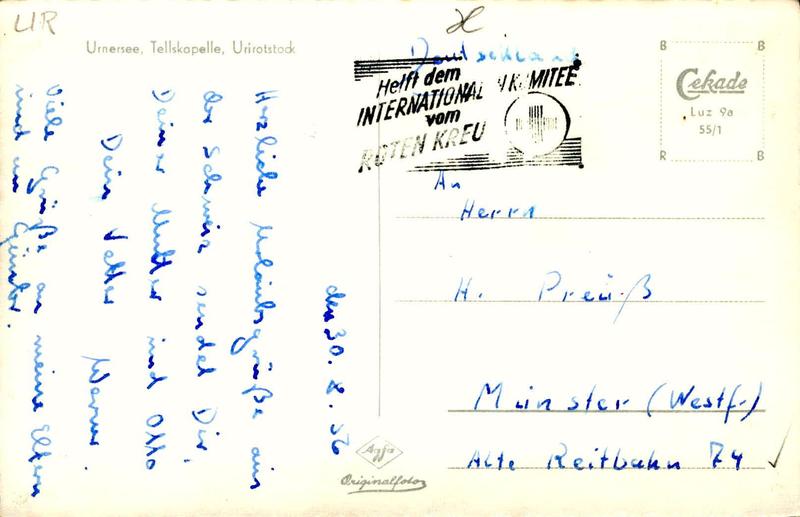 UR
Urnersee, Tellskapelle, Urirotstock
den 30. 8. 56
Herzliche Urlaubsgrüße aus
der Schweiz sendet Dir,
Deiner Mutter und Otto
Dein Vetter Werner.
Viele Grüße an meine Eltern
und an Günter.
Deutschland
Helft dem
INTERNATIONALEN KOMITEE
vom
ROTEN KREU
B B
Cekade
Luz 9a
55/1
R B
An
Herrn
H. Preuß
Münster (Westf.)
Alte Reitbahn 74
Agfa
Originalfoto